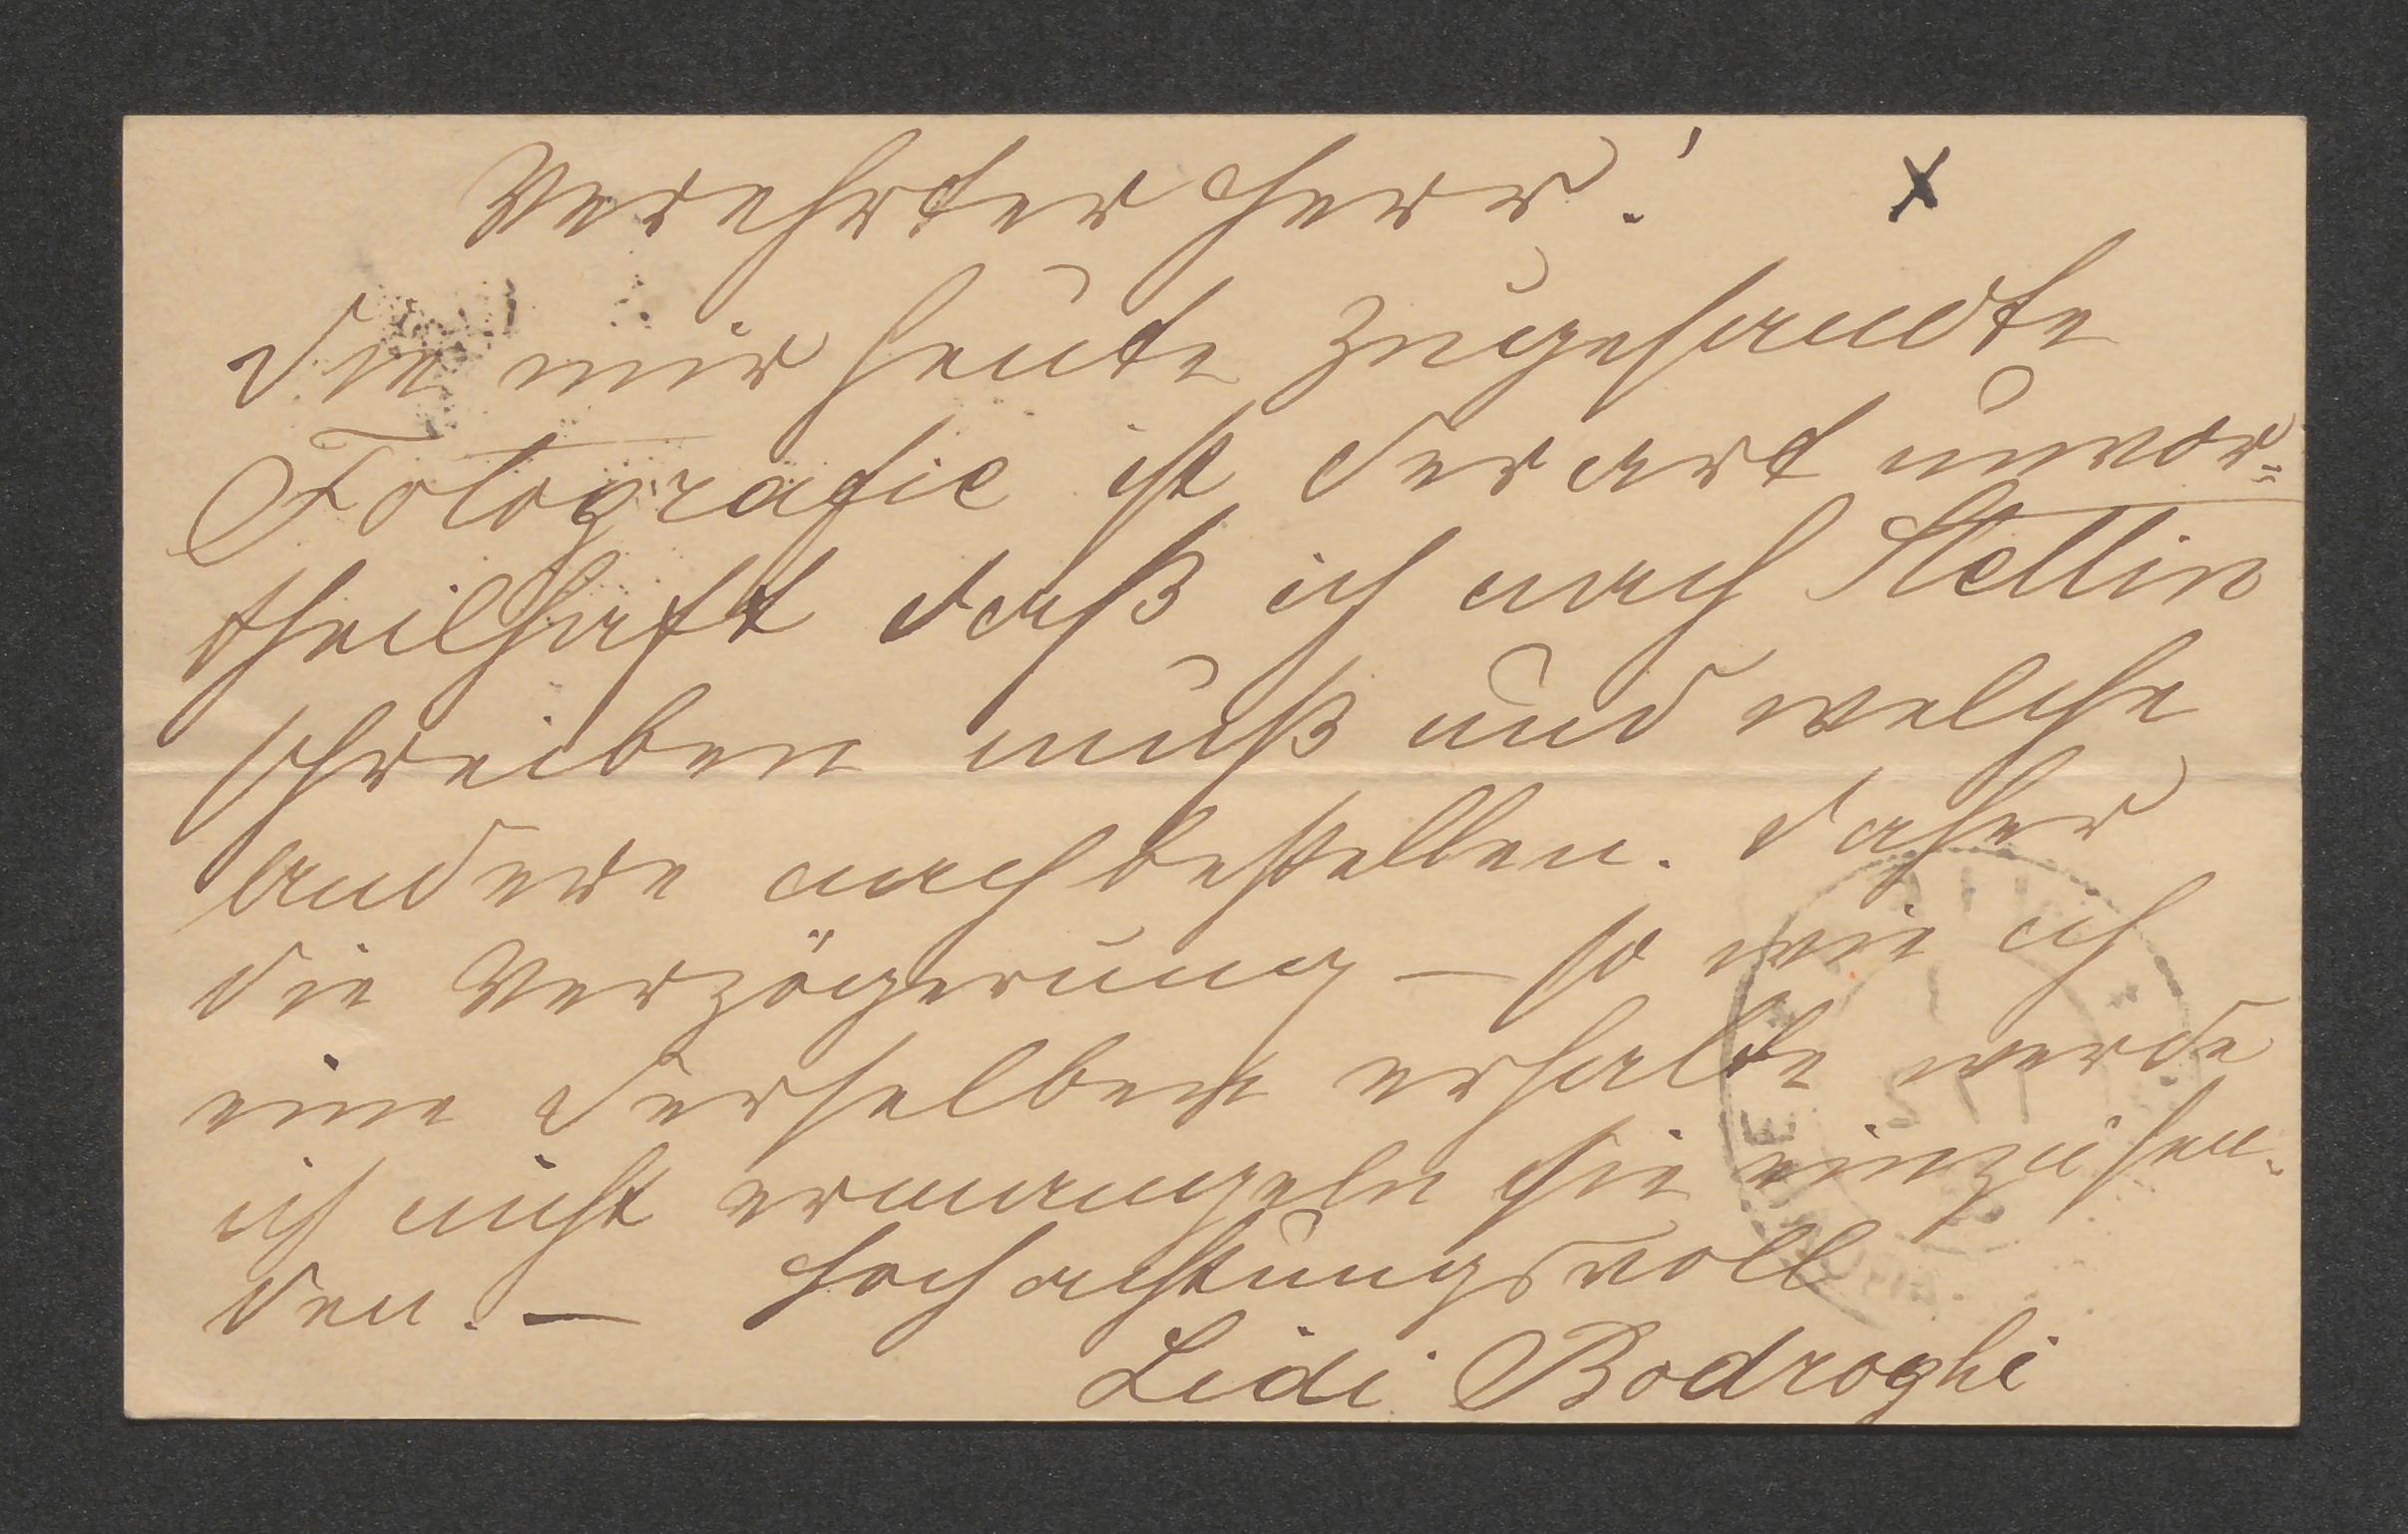 Verehrter Herr! x
Die mir heute zugesandte
Fotografie ist derart unvor=
theilhaft daß ich nach Stettin
schreiben muß und welche
andere nachbestellen. Daher
die Verzögerung — so wie ich
eine derselben erhalte werde
ich nicht ermangeln sie einzusen-
den. — Hochachtungsvoll
Lidi Bodroghi